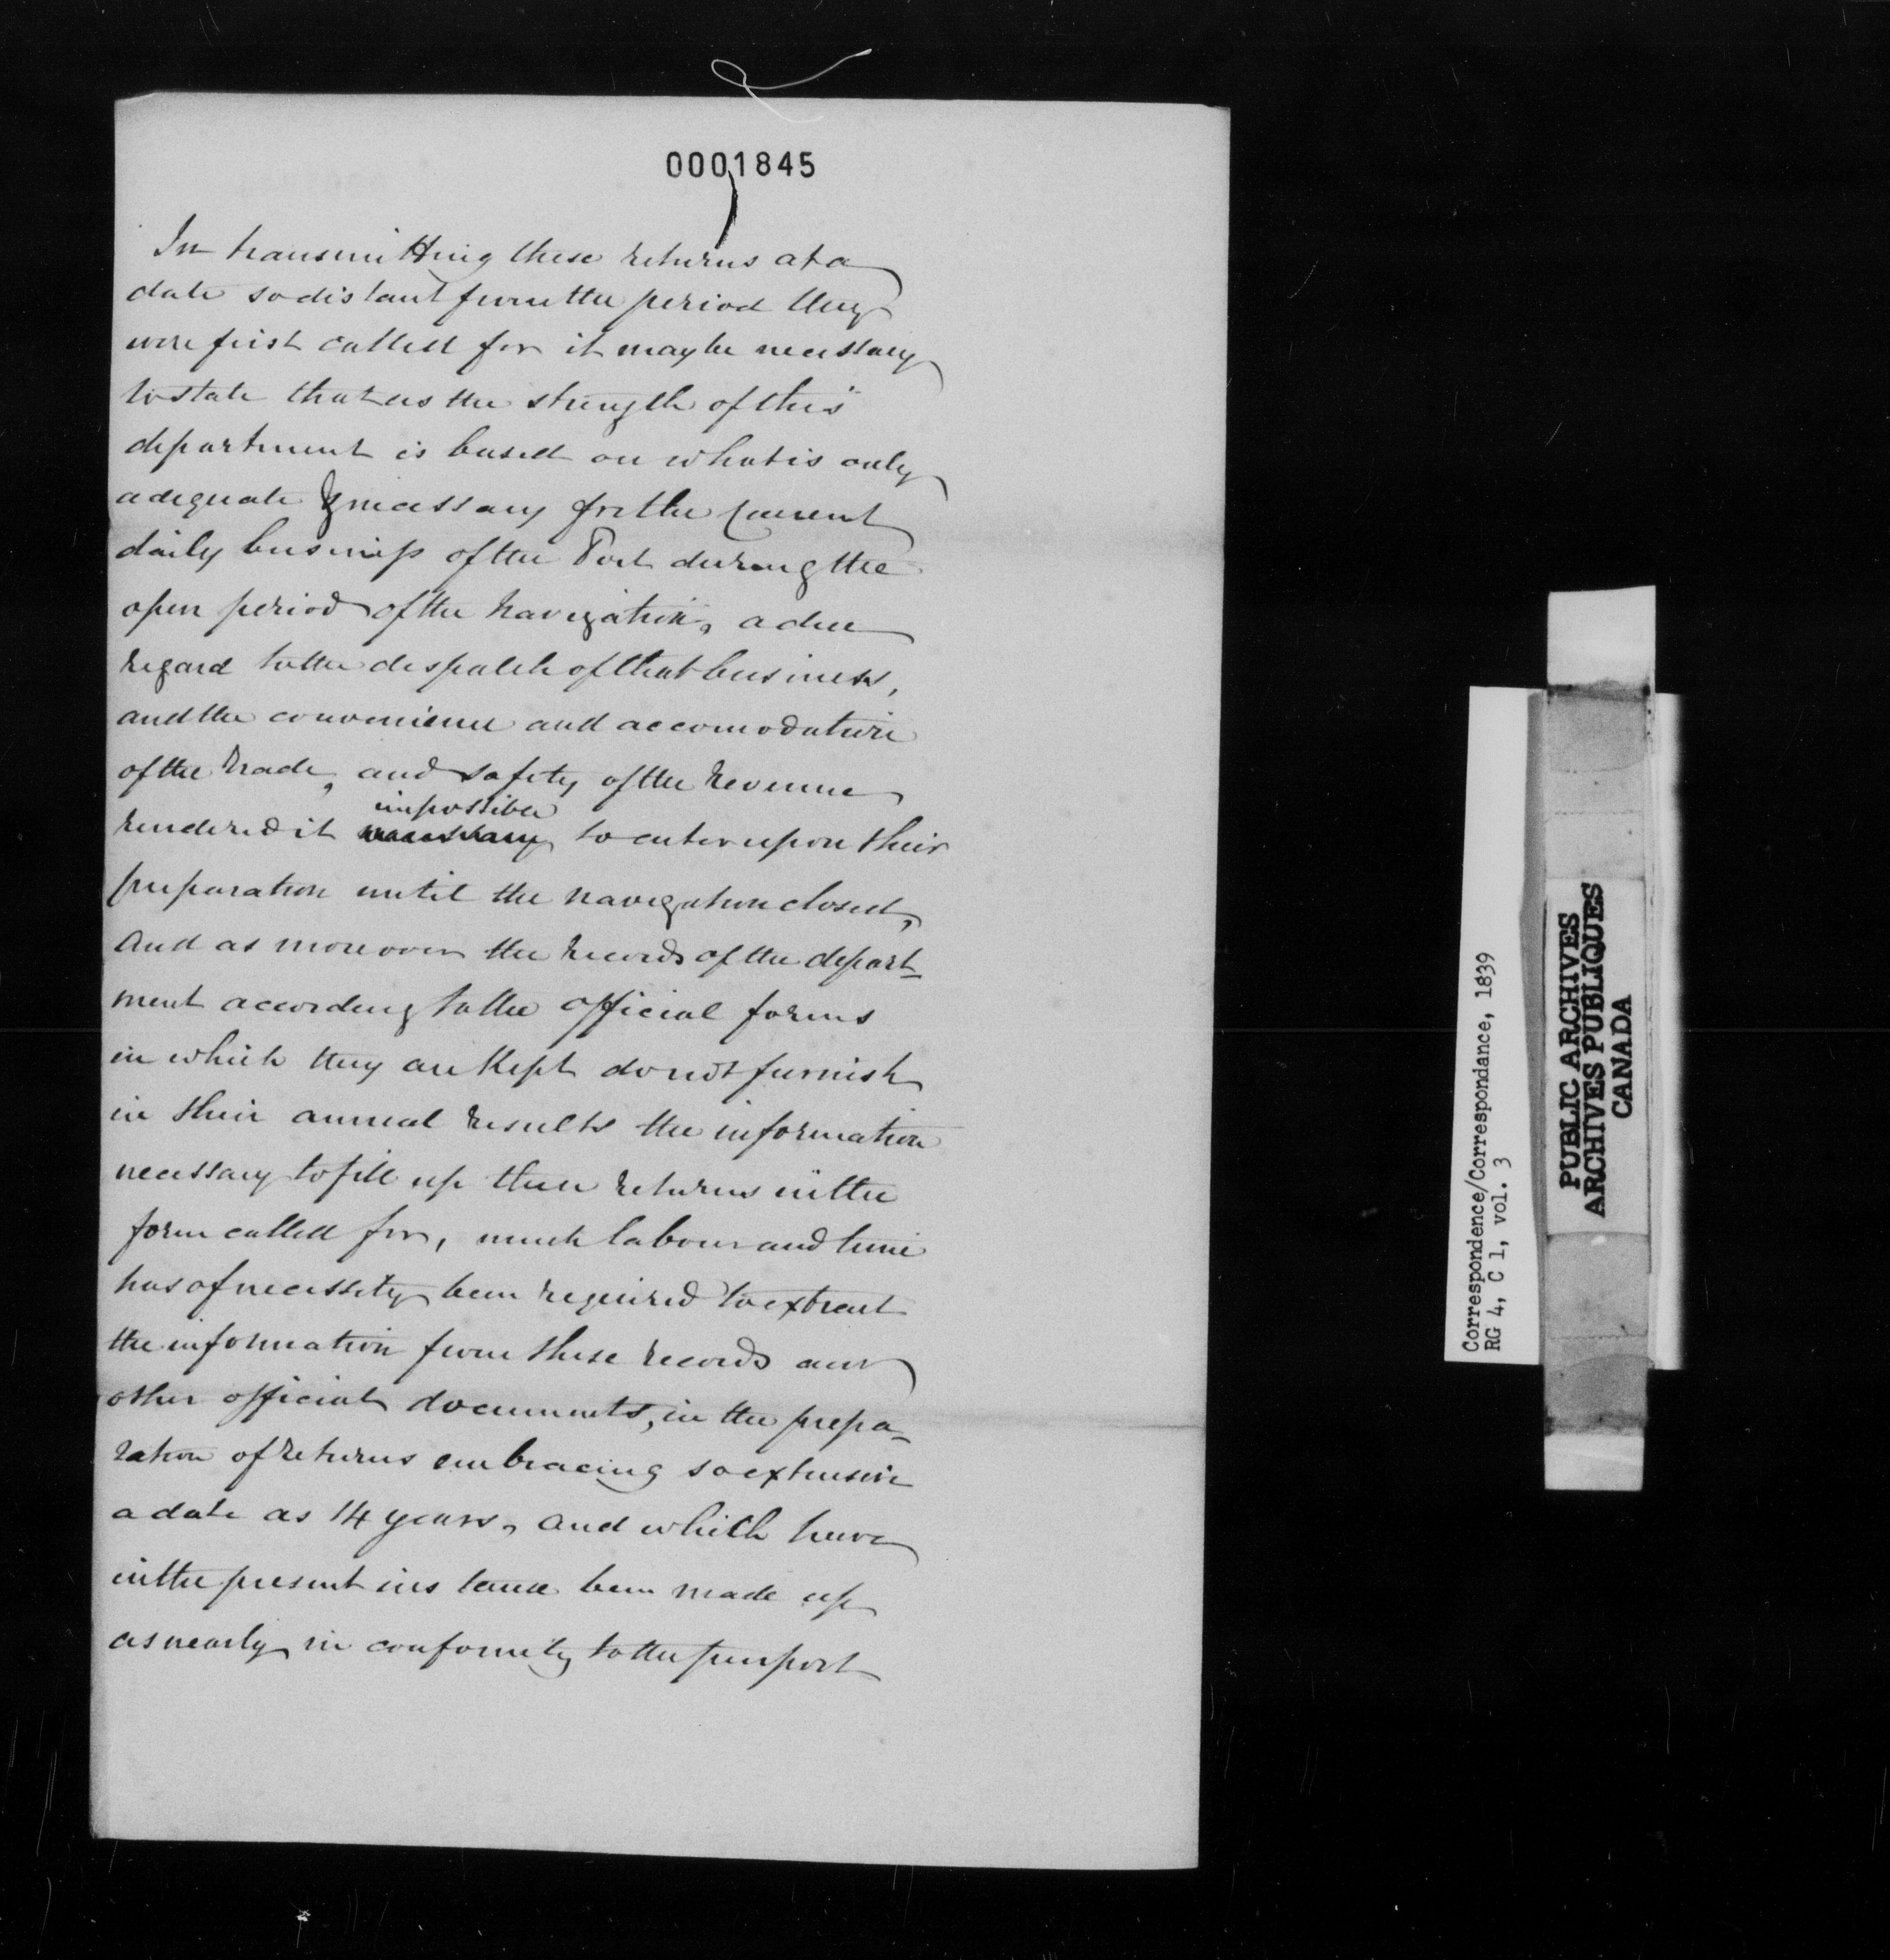 0001845
In transmitting these returns at a
date so distant from the period they
were first called for it may be necessary
to state that as the strength of this
department is based on what is only
adequate & necessary for the current
daily business of the Port during the
open period of the navigation, a due
regard to the despatch of that business,
and the convenience and accomodation
of the trade, and safety of the revenue
impossible
rendered it necessary to enter upon their
preparation until the navigation closed,
and as moreover the records of the depart-
ment according to the official forms
in which they are kept do not furnish
in their annual results the information
necessary to fill up these returns in the
form called for, much labour and time
has of necessity been required to extract
the information from these records and
other official documents, in the prepa-
ration of returns embracing so extensive
a date as 14 years, and which have
in the present instance been made up
as nearly in conformity to the purport
Correspondence/Correspondance, 1839
RG 4, C 1, vol. 3
PUBLIC ARCHIVES
ARCHIVES PUBLIQUES
CANADA